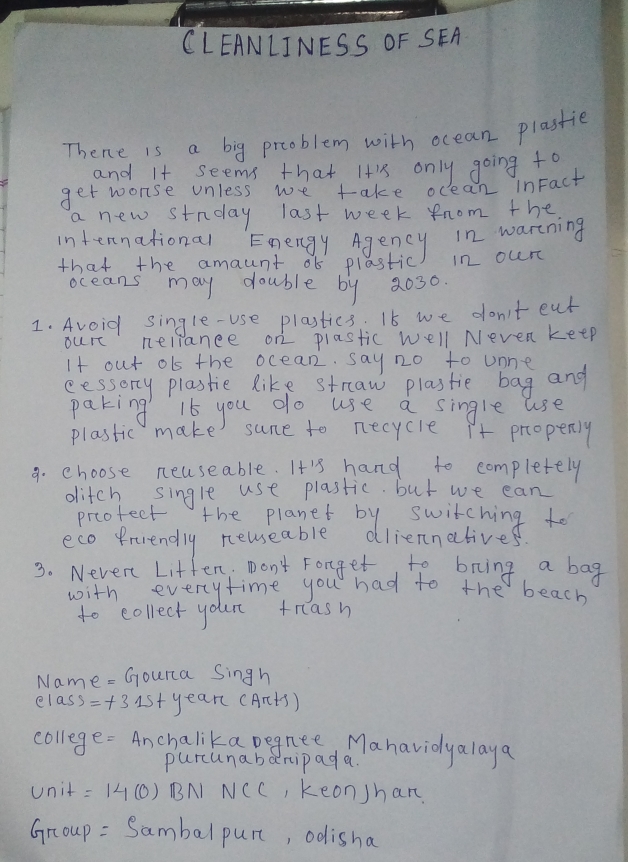 CLEANLINESS OF SEA
There is a big problem with ocean plastic
and It seems that It's only going to
get worse unless we take ocean Infact
a new strday last week from the
international Energy Agency in warning
that the amaunt of plastic in our
oceans may double by 2030.
1. Avoid single-use plastics. If we don't cut
our reliance on plastic well Never keep
It out ofs the ocean. say no to unne
cessory plastic like straw plastic bag and
paking If you do use a single use
plastic make sure to recycle It properly
2. choose reuseable. It's hard to completely
ditch single use plastic. but we can
protect the planet by switching to
eco friendly reuseable aliernatives.
3. Never Litter. Don't Forget to bring a bag
with everytime you had to the beach
to collect your trash
Name = Goura Singh
class = +3 1st year (Arts)
college = Anchalika Degree Mahavidyalaya
purunabaripada.
unit = 14 (O) BN NCC, Keonjhar.
Group = Sambalpur, odisha